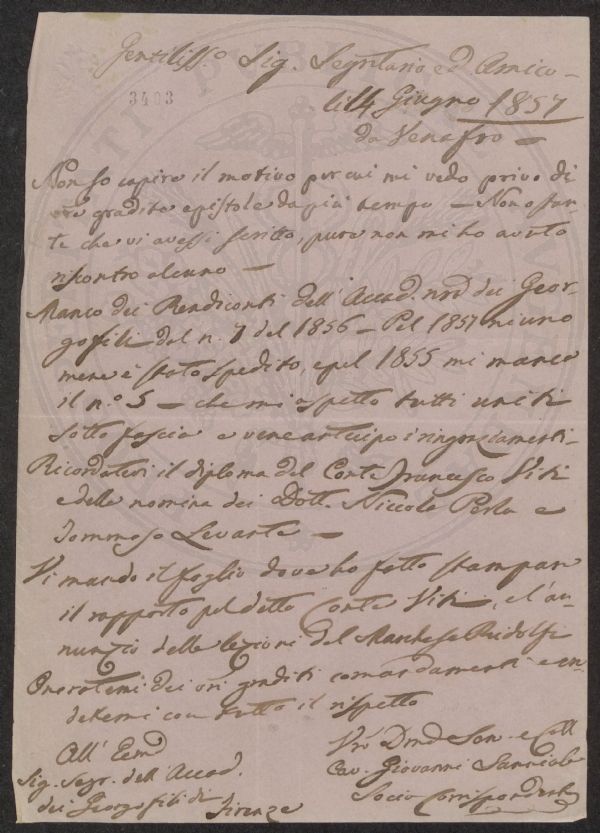 Gentiliss.o Sig. Segretario ed Amico –
li 14 Giugno 1857
3403
da Venafro –
Non so capire il motivo per cui mi vedo privo di
vre gradite epistole da più tempo – Nonostan-
te che vi avessi scritto, pure non mi ho avuto
riscontro alcuno –
Manco dei Rendiconti dell'Accad. nrã dei Geor-
gofili dal n. 7 del 1856 – Pel 1857 niuno
mene è stato spedito, e pel 1855 mi manca
il n.o 5 – che mi aspetto tutti uniti
sotto fascia e vene anticipo i ringraziamenti –
Ricordatevi il diploma del Conte Francesco Viti
e delle nomine dei Dott. Niccola Perla e
Tommaso Levante –
Vi mando il foglio dove ho fatto stampare
il rapporto pel detto Conte Viti, e l'an-
nunzio delle lezioni del Marchese Ridolfi
Onoratemi dei vri graditi comandamenti e cre-
detemi con tutto il rispetto
All' Ecmõ
Sig. Segr. dell'Accad.
dei Georgofili di Firenze
Vrõ Dmõ Ser. e Coll.
Cav. Giovanni Sannicola
Socio Corrispondente